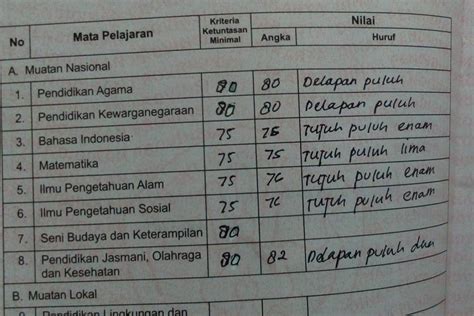 No Mata Pelajaran Kriteria Ketuntasan Minimal Nilai
Angka Huruf
A. Muatan Nasional
1. Pendidikan Agama 80 80 Delapan puluh
2. Pendidikan Kewarganegaraan 80 80 Delapan puluh
3. Bahasa Indonesia 75 76 tujuh puluh enam
4. Matematika 75 75 tujuh puluh lima
5. Ilmu Pengetahuan Alam 75 76 tujuh puluh enam
6. Ilmu Pengetahuan Sosial 75 76 tujuh puluh enam
7. Seni Budaya dan Keterampilan 80
8. Pendidikan Jasmani, Olahraga dan Kesehatan 80 82 Delapan puluh dua
B. Muatan Lokal
Pendidikan Lingkungan dan